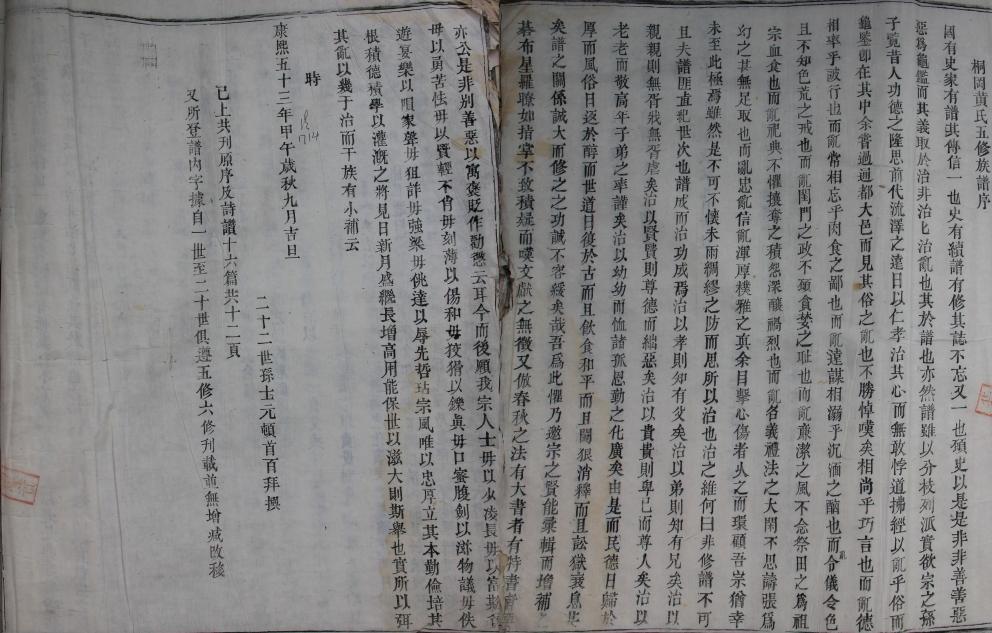 桐岡黃氏五修族譜序
國有史家有譜其傳信一也史有續譜有修其誌不忘又一也獨史以是是非非善善惡
惡爲龜鑑而其義取於治非治匕治亂也其於譜也亦然譜雖以分枝列派實欲宗之孫
子覽昔人功德之隆思前代流澤之遠日以仁孝治其心而無敢悖道拂經以亂乎俗而
龜鑒卽在其中余嘗過通都大邑而見其俗之亂也不勝悼嘆矣相尚乎巧言也而亂德
相率乎詖行也而亂常相忘乎肉食之鄙也而亂遠謀相溺乎沉湎之酗也而亂令儀令色
且不知色荒之戒也而亂閨門之政不顧貪婪之耻也而亂亷潔之風不念祭田之爲祖
宗血食也而亂祀典不懼攘奪之積怨深釀禍烈也而亂名義禮法之大閑不思譸張爲
幻之甚無足取也而亂忠亂信亂渾厚樸雅之真余目擊心傷者乆之而環顧吾宗猶幸
未至此極焉雖然是不可不懷未雨綢繆之防而思所以治也治之維何曰非修譜不可
且夫譜匪直紀世次也譜成而治功成焉治以孝則知有父矣治以弟則知有兄矣治以
親親則無胥戕無胥虐矣治以賢賢則尊德而絀惡矣治以貴貴則卑已而尊人矣治以
老老而敬高年子弟之率謹矣治以幼幼而恤諸孤恩勤之化廣矣由是而民德日歸於
厚而風俗日返於醇而世道日復於古而且飲食和平而且鬬狠消釋而且訟獄衰息
矣譜之關係誠大而修之之功誠不容緩矣哉吾爲此懼乃邀宗之賢能彙輯而增補
棊布星羅瞭如指掌不致積疑而嘆文獻之無徵又倣春秋之法有大書者有特書
亦公是非别善惡以寓褒貶作勸懲云耳今而後願我宗人士毋以少凌長毋以富欺
毋以勇苦怯毋以賢輕不肖毋刻薄以傷和毋狡猾以鑠眞毋口蜜腹劍以滋物議毋佚
遊宴樂以隕家聲毋狙詐毋強梁毋佻達以辱先哲玷宗風唯以忠厚立其本勤儉培其
根積德積學以灌漑之將見日新月盛繼長增高用能保世以滋大則斯舉也實所以弭
其亂以幾于治而于族有小補云
時
1714
康熙五十三年甲午歲秋九月吉旦
二十二世孫士元頓首百拜撰
已上共刊原序及詩譜十六篇共十二頁
又所登譜內字據自一世至二十世俱遵五修六修刋載前無增減改移